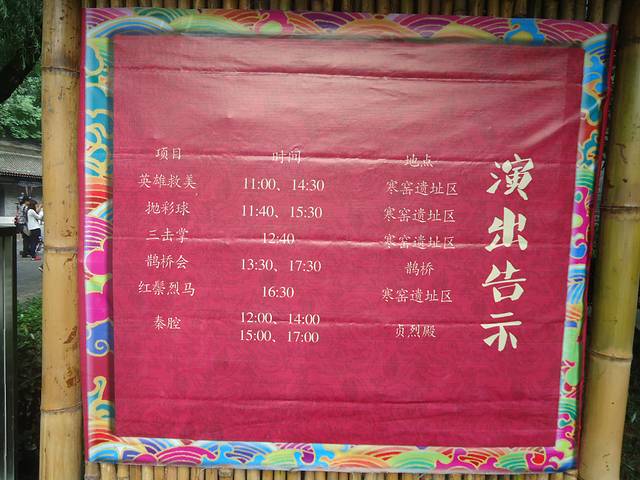 演出告示
项目 时间 地点
英雄救美 11:00、14:30 寒窑遗址区
抛彩球 11:40、15:30 寒窑遗址区
三击掌 12:40 寒窑遗址区
鹊桥会 13:30、17:30 鹊桥
红鬃烈马 16:30 寒窑遗址区
秦腔 12:00、14:00 贞烈殿
15:00、17:00